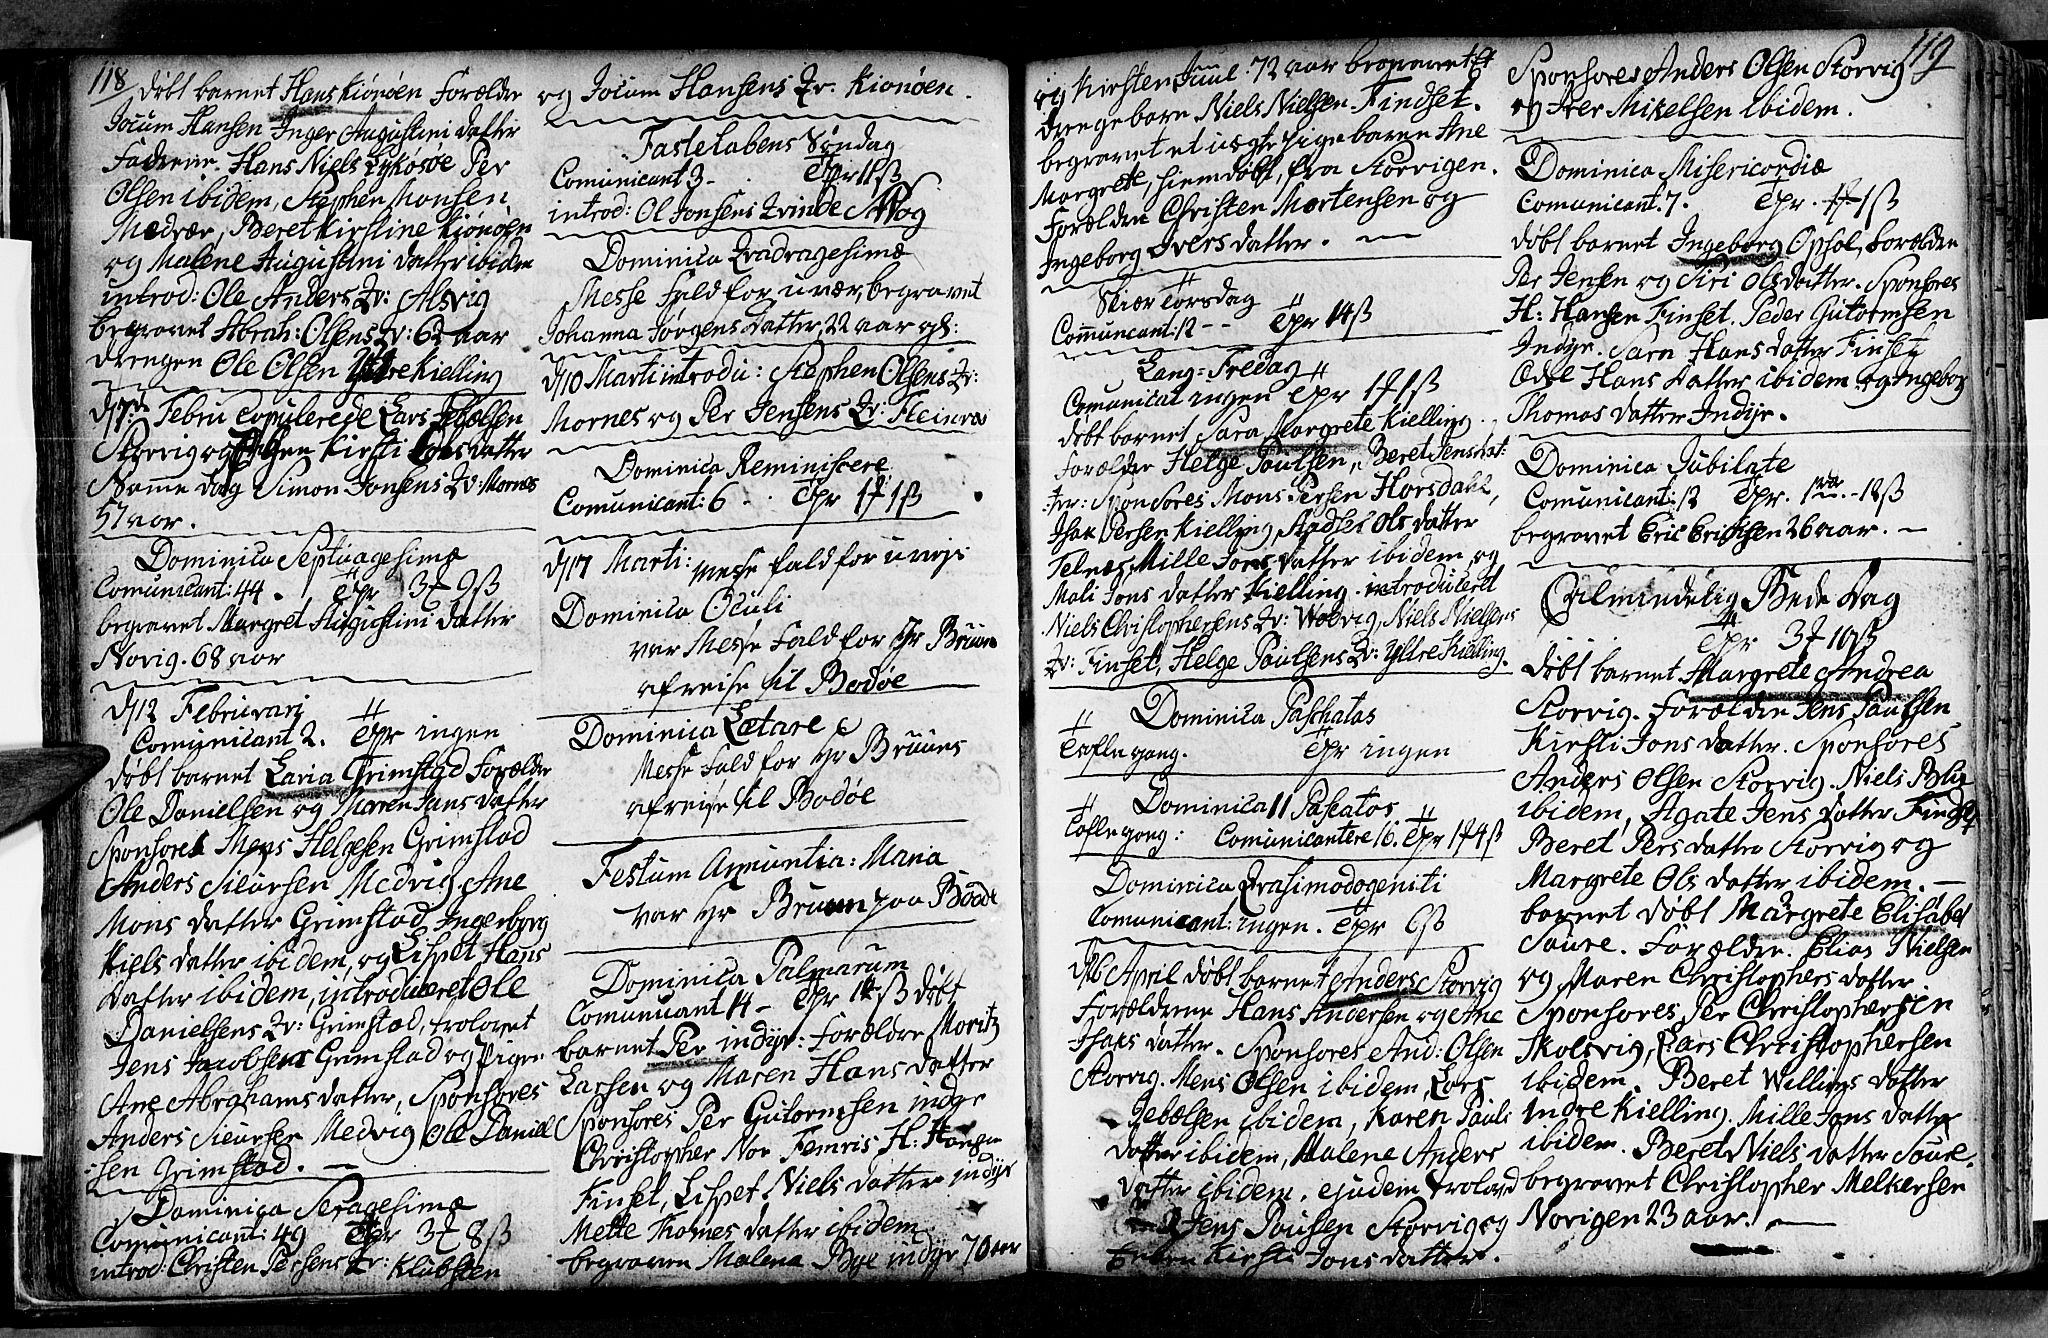 118
døbt barnet Hans Kiønøen Forældre
Jocum Hansen Inger Augustini datter
Fadrene Hans Niels Lykøsøe Per
Olsen ibidem, Stephen Monsen
Medvær, Beret Kirstine Kiønøen
og Malene Augustini datter ibidem
introd: Ole Anders Qv: Alsvig
begravet Abrah: Olsens Qv: 62 aar
drengen Ole Olsen Ytre Kielling
d 17de Febru copulerede Lars
Storvig og Kirsti Lars datter
Samme dag Simon Jonsens Qv: Mornes
57 aar.
Dominica Septuagesimæ
Comunicant: 44. Tpr 3 f 9 ß
begravet Margret Augustini datter
Novig. 68 aar
d 12 Februari
Comunicant 2. Tpr ingen
døbt barnet Laria Grimstad Forældre
Ole Danielsen og Maren Jans datter
Sponsores Mens Helgesen Grimstad
Anders Sieursen Medvig Ane
Mons datter Grimstad, Ingeborg
Niels datter ibidem, og Lispet Hans
datter ibidem, introduceret Ole
Danielsens Qv: Grimstad, trolovet
Jens Jacobsen Grimstad og Pigen
Ane Abrahams datter, Sponsores
Anders Sieursen Medvig Ole Daniel
sen Grimstad.
Dominica Sexagesimæ
Comunicant: 49 Tpr 3 f 8 ß
introd: Christen Persens Qv: Klubsten
og Jocum Hansens Qv. Kiønøen.
Fastelabens Søndag
Comunicant 3 - Tpr 11 ß
introd: Ol Jonsens Qvinde Skog
Dominica Qvadragesimæ
Messe Fald for uvær, begravet
Johanna Jørgens datter, 22 aar gl:
d 10 Marti introdu: Stephen Olsens Qv:
Mornes og Per Jensens Qv: Fleinvær
Dominica Reminiscere
Comunicant: 6 - Tpr 1 f 1 ß
d 17 Marti: Messe fald for uveir
Dominica Oculi
var Messe Fald for Hr Bruuns
afreise til Bodøe
Dominica Lætare
Messe Fald for Hr Bruuns
afreise til Bodøe
Festum Annuntia: Maria
var Hr Bruun paa Bodøe
Dominica Palmarum
Comunicant 4 - Tpr 14 ß døbt
barnet Per indyr: Forældre Moritz
Larsen og Maren Hans datter
Sponsores Per Gutormsen indyr
Christopher Nor Femris H: Hansen
Finset, Lispet Niels datter indyr
Mette Thomes datter ibidem
begraven Malena Bye indyr 70 aar
119
og Kirsten Juul 72 aar begravet et
drengebarn Niels Nielsen Findset.
begravet et uægte pigebaren Ane
Margrete, hiemdøbt, fra Storvigen.
Forældre Christen Mortensen og
Ingeborg Ivers datter.
Skiær Torsdag
Comunicant: 12 - - Tpr 14 ß
Lang-Fredag
Comunicat ingen Tpr 1 f 1 ß
døbt barnet Sara Margrete Kielling
forældre Helge Paulsen, Beret Jensdat:
ter: Sponsores Mons Persen Horsdahl,
Isak Persen Kielling, Ols datter
Felnes, Mille Jons datter ibidem, og
Mali Jons datter Kielling. introduceret
Niels Christophersens Qv: Wolvig, Niels Nielsens
Qv: Finset, Helge Paulsens Qv: Yttre Kielling.
Dominica Paschatos
Tafle gang. Tpr ingen
Dominica 11 Paskatos
Tafle gang: Comunicantere 16. Tpr 1 f 4 ß
Dominica Qvasimodogeniti
Comunicant: ingen. Tpr 6 ß
d 16 April døbt barnet Anders Storvig
Forældrene Hans Andersen og Ane
Isaks datter. Sponsores And: Olsen
Storvig. Mens Olsen ibidem, Lars
ibidem, Karen Pauls
datter ibidem, Malene Anders
datter ibidem. ejusdem troloved
Jens Paulsen Storvig og
Kirsti Jons datter.
Sponsores Anders Olsen Storvig
og Iver Mikelsen ibidem.
Dominica Misericordiæ
Comunicant. 7. Tpr. 1 f 1 ß
døbt barnet Ingeborg Opsal, Forældre
Per Jensen og Siri Ols datter. Sponsores
H: Hansen Finset. Peder Gutormsen
Indyr. Sara Hans datter Finset
Odel Hans datter ibidem og Ingebor
Thomas datter Indyr.
Dominica Jubilate
Comunicant: 12 Tpr. - 18 ß
begravet Eric Erichsen 26 aar. -
Almindelig Bede Dag
Tpr 3 f 10 ß
døbt barnet Margrete Andrea
Storvig. Forældre Jens Paulsen
Kirsti Jons datter. Sponsores
Anders Olsen Storvig. Niels
ibidem, Agate Jens datter Findset
Beret Pers datter Storvig og
Margrete Ols datter ibidem. -
barnet døbt Margrete Elisabet
Saure. Forældre. Elias Nielsen
og Maren Christophers datter
Sponsores Per Christophersen
Skolsvig, Lars Christophersen
ibidem. Beret Willums datter
Indre Kielling. Mille Jons datter
ibidem. Beret Niels datter Saure.
begravet Christopher Melkersen
Norigen 23 aar.